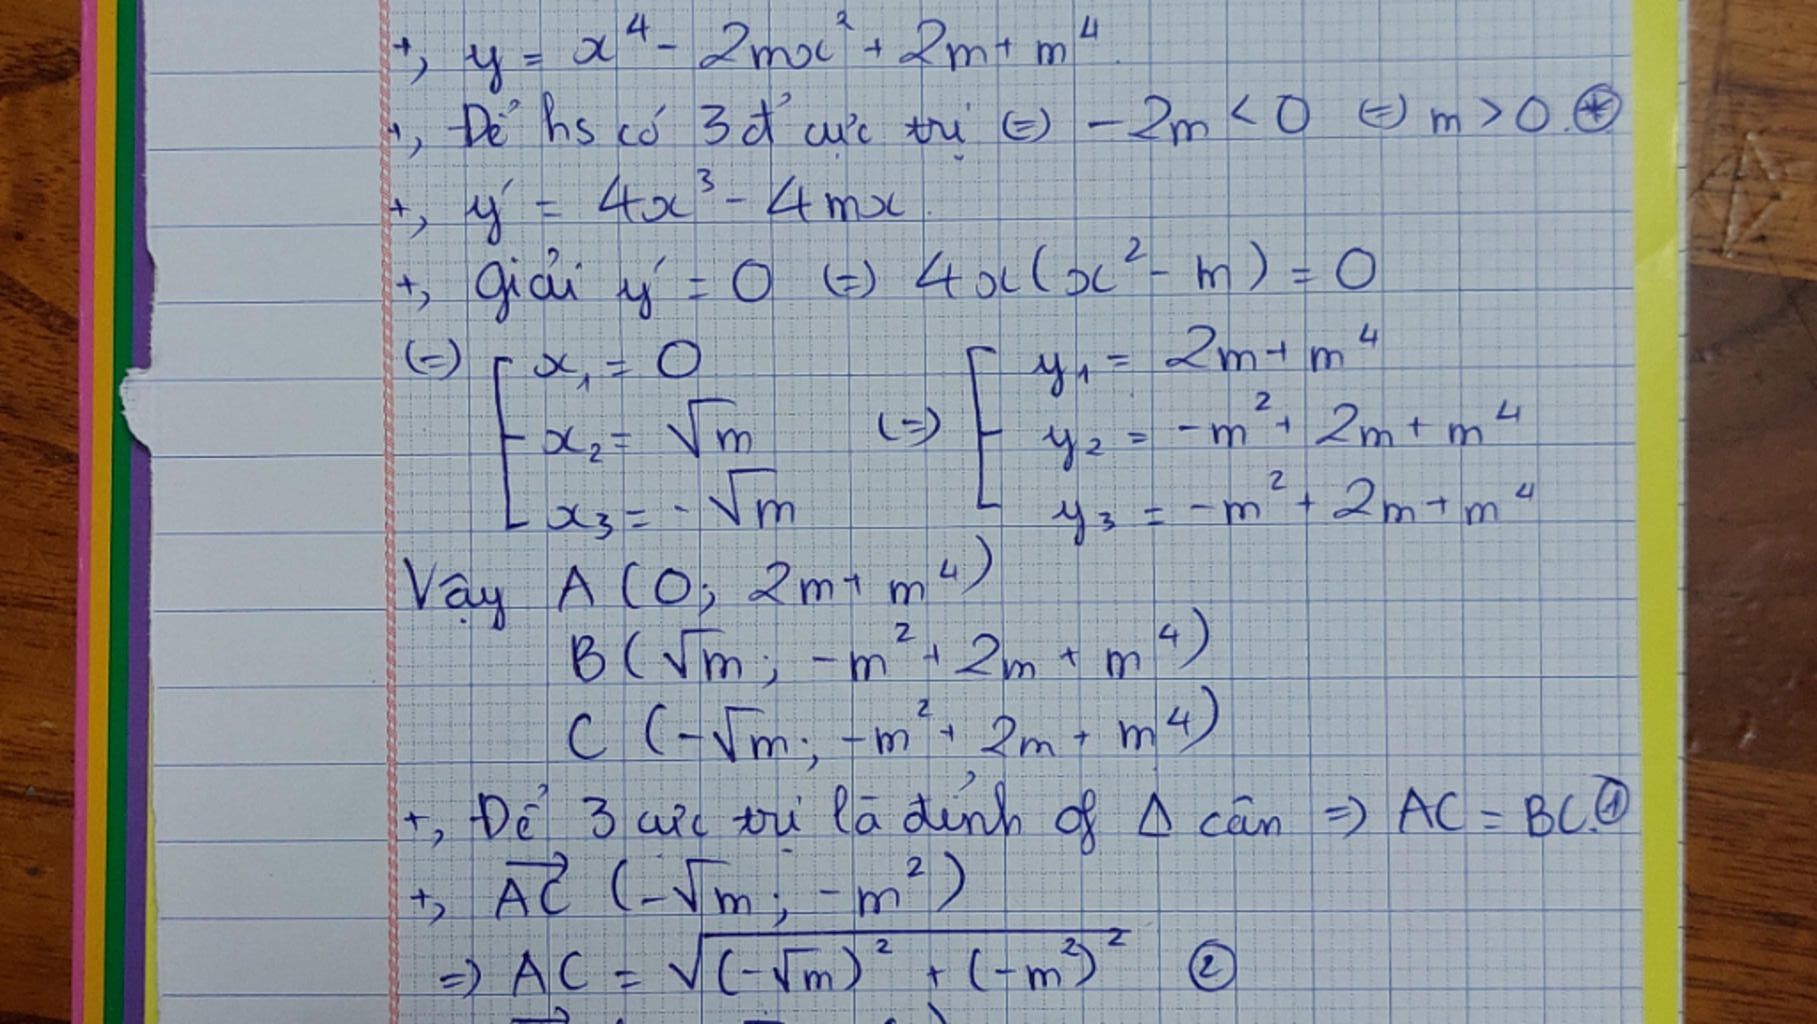 +, y = x⁴ - 2mx² + 2m + m⁴.
+, Để hs có 3 đ' cực trị (=) -2m < 0 (=) m > 0. (*)
+, y' = 4x³ - 4mx.
+, giải y' = 0 (=) 4x(x² - m) = 0
(=) [ x₁ = 0 [ y₁ = 2m + m⁴
x₂ = √m (=) y₂ = -m² + 2m + m⁴
x₃ = -√m y₃ = -m² + 2m + m⁴
Vậy A (0; 2m + m⁴)
B (√m; -m² + 2m + m⁴)
C (-√m; -m² + 2m + m⁴)
+, Để 3 cực trị là đỉnh of Δ cân => AC = BC. ①
+, AC→ (-√m; -m²)
=) AC = √((-√m)² + (-m²)²) ②